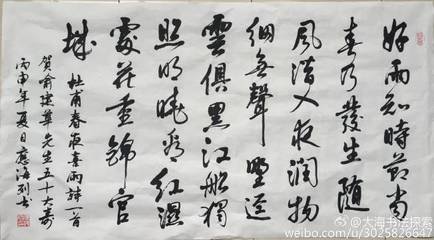 好雨知時節當
春乃發生隨
風潛入夜潤物
細無聲野逕
雲俱黑江船獨
照明曉看紅濕
處花重錦官
城 杜甫春夜喜雨詩一首
賀俞華先生五十大壽
丙申年夏日應海書
@大海书法探索
weibo.com/u/3025826647